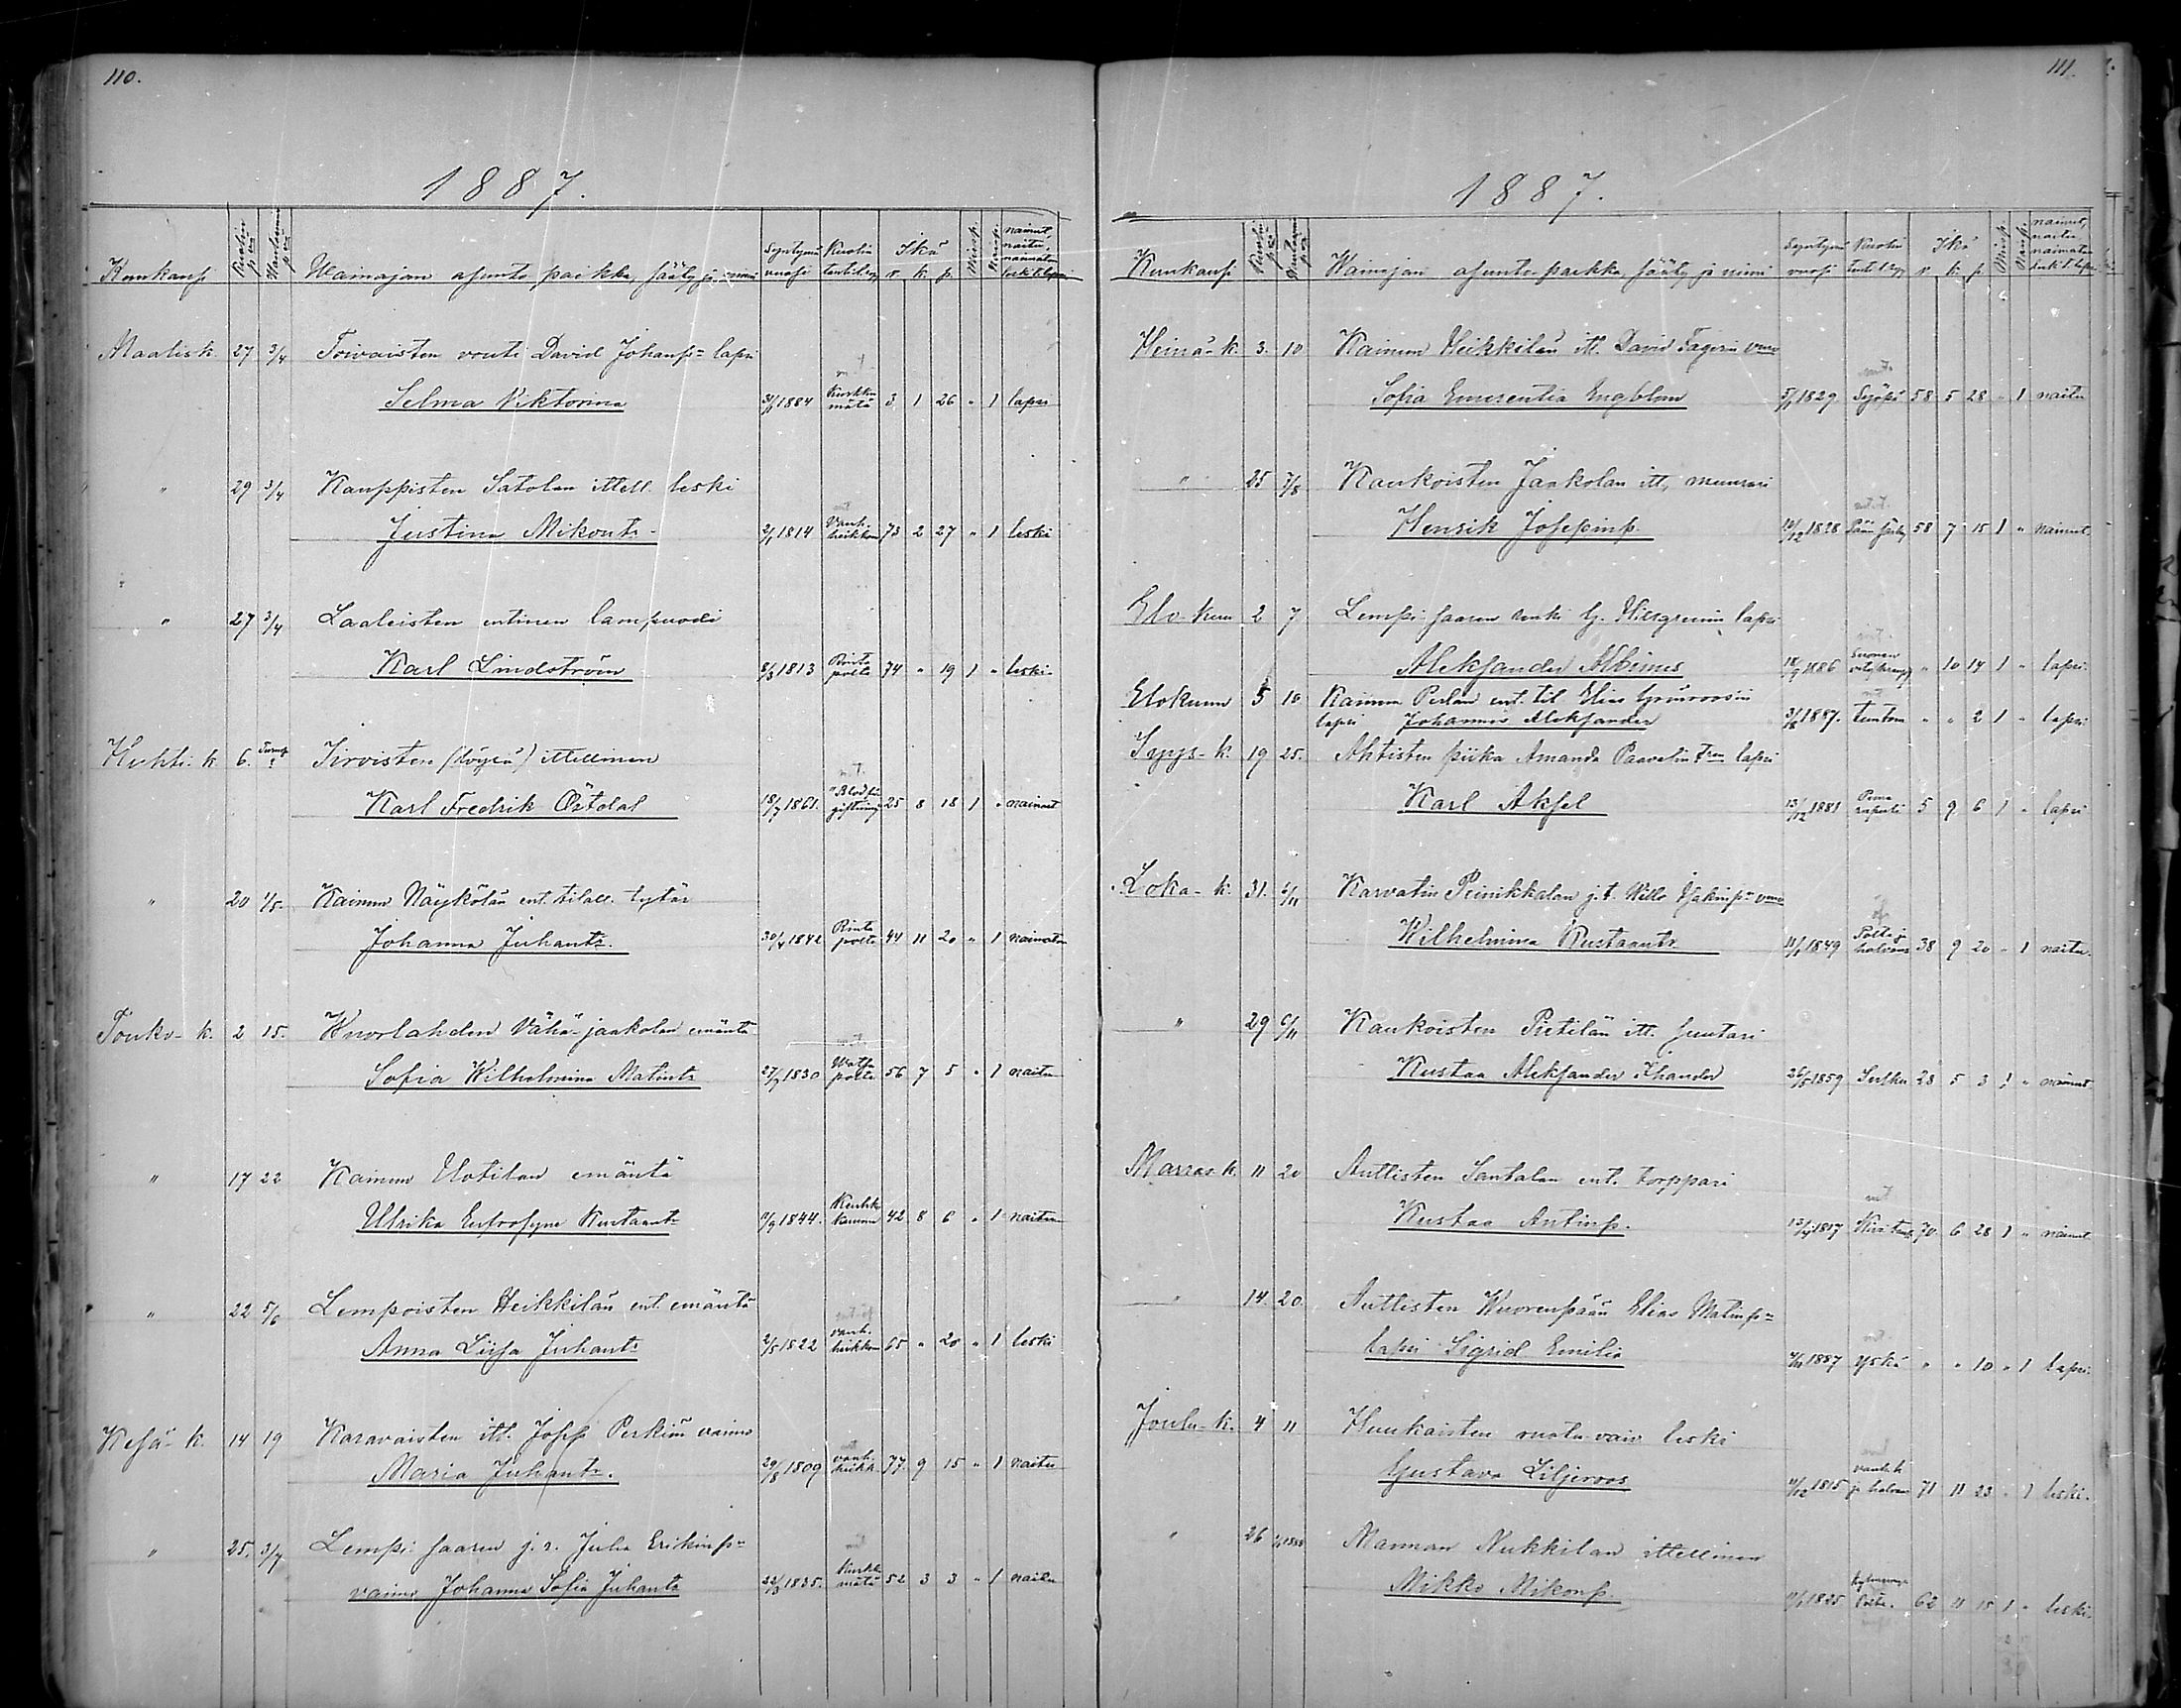 110.
1887.
Kuukausi Kuolin päiv Hautaamis päiv Wainajan asunto paikka, sääty ja nimi Syntymä vuosi Kuolin tauti Ikä v. k. p. Miesp. Naisp. nainut, naitu, naimaton leski t. lapsi
Maalis k. 27 3/4 Toivaisten vouti David Johanss:n lapsi
Selma Viktorina 31/1 1884 Kurkku mätä 3 1 26 " 1 lapsi
" 29 3/4 Kauppisten Satolan ittell. leski
Justina Mikont: 2/1 1814 Vanh. heikkou 73 2 27 " 1 leski
" 27 3/4 Laaleisten entinen lampuodi
Karl Lindström 8/3 1813 Rinta polte 74 " 19 1 " leski
Huhti-k. 6. Jirvoisten ittellinen
Karl Fredrik Östdal 18/7 1861. Blod för giftning 25 8 18 1 " nainut
" 20 1/5. Kainun Näykölän ent. tilall. tytär
Johanna Juhant:r. 30/4 1842 Rinta polte 44 11 20 " 1 naimaton
Touko-k. 2 15. Kuorlahden Vähä-jaakolan emäntä
Sofia Wilhelmina Matint:r 27/9 1830 Watsa polte 56 7 5 " 1 naitu
" 17 22 Kainun Uotilan emäntä
Ulrika Eufrosyne Kustaant:r 11/9 1844. Keuhk 42 8 6 " 1 naitu
" 22 5/6 Lempoisten Heikkilän ent. emäntä
Anna Liisa Juhant:r 2/5 1822 vanh. heikkou 65 " 20 " 1 leski
Kesä-k. 14 19 Karavaisten itt. Josef Perkiin vaimo
Maria Juhant:r. 29/8 1809 vanh. heikk. 77 9 15 " 1 naitu
" 25. 3/7 Lempi saaren j. r. Juha Erikinp:n
vaimo Johanna Sofia Juhant:r 22/3 1835. Kurkk mätä 52 3 3 " 1 naitu
111.
1887.
Kuukausi Kuolin päiv Hautaam päiv Wainajan asunto-paikka, sääty ja nimi Syntymä vuosi Kuolin tauti Ikä v. k. p. Miesp. Naisp. nainut, naitu naimaton leski t. lapsi
Heinä-k. 3. 10 Kainun Heikkilän itt. David Fagerin vmo
Sofia Engblom 5/1 1829 Syöpä 58 5 28 " 1 naitu
" 25 7/8 Kaukoisten Jaakolan itt. muurari
Henrik Josepinp. 10/12 1828 58 7 15 1 " nainut
Elo-kuu 2 7 Lempi-saaren renki G. lapsi
Aleksander Albinus 18/9 1886 " 10 14 1 " lapsi
Elokuun 5 10 Kainun Perlan ent. til. Elias Grönroosin
lapsi Johannes Aleksander 3/8 1887. tuntem " " 2 1 " lapsi
Syys-k. 19 25. Ahtisten piika Amanda Paavalin t:ren lapsi
Karl Aksel 13/12 1881 Puna raputi 5 9 6 1 " lapsi
Loka-k. 31. 6/11 Karvatin Prinikkalan j. t. Wille Isakinp:n vmo
Wilhelmina Kustaant:r 11/1 1849 Polte ja halvaus 38 9 20 " 1 naitu.
" 29 6/11 Kaukoisten Pietilän itt. suutari
Kustaa Aleksander Ekander 26/5 1859 28 5 3 1 " nainut
Marras-k. 11 20 Auttisten Santalan ent. torppari
Kustaa Antinp. 13/4 1817 70 6 28 1 " nainut
" 14. 20. Auttisten Kuorenpään Elias Matinp:n
lapsi Sigrid Emilia 4/11 1887 yskä " " 10 " 1 lapsi.
Joulu-k. 4 11 Huukaisten ruotu-vaiv leski
Gustava Liljeroos 11/12 1815 vanh. h ja halvau 71 11 23 " 1 leski.
" 26 1/1 1888 Mannan Nukkilan ittellinen
Mikko Mikonp. 11/1 1825 Polte. 62 11 15 1 " leski.